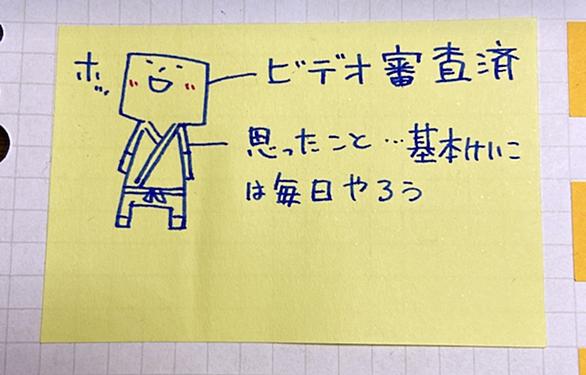 ホッ
ビデオ審査済
思ったこと…基本けいこ
は毎日やろう